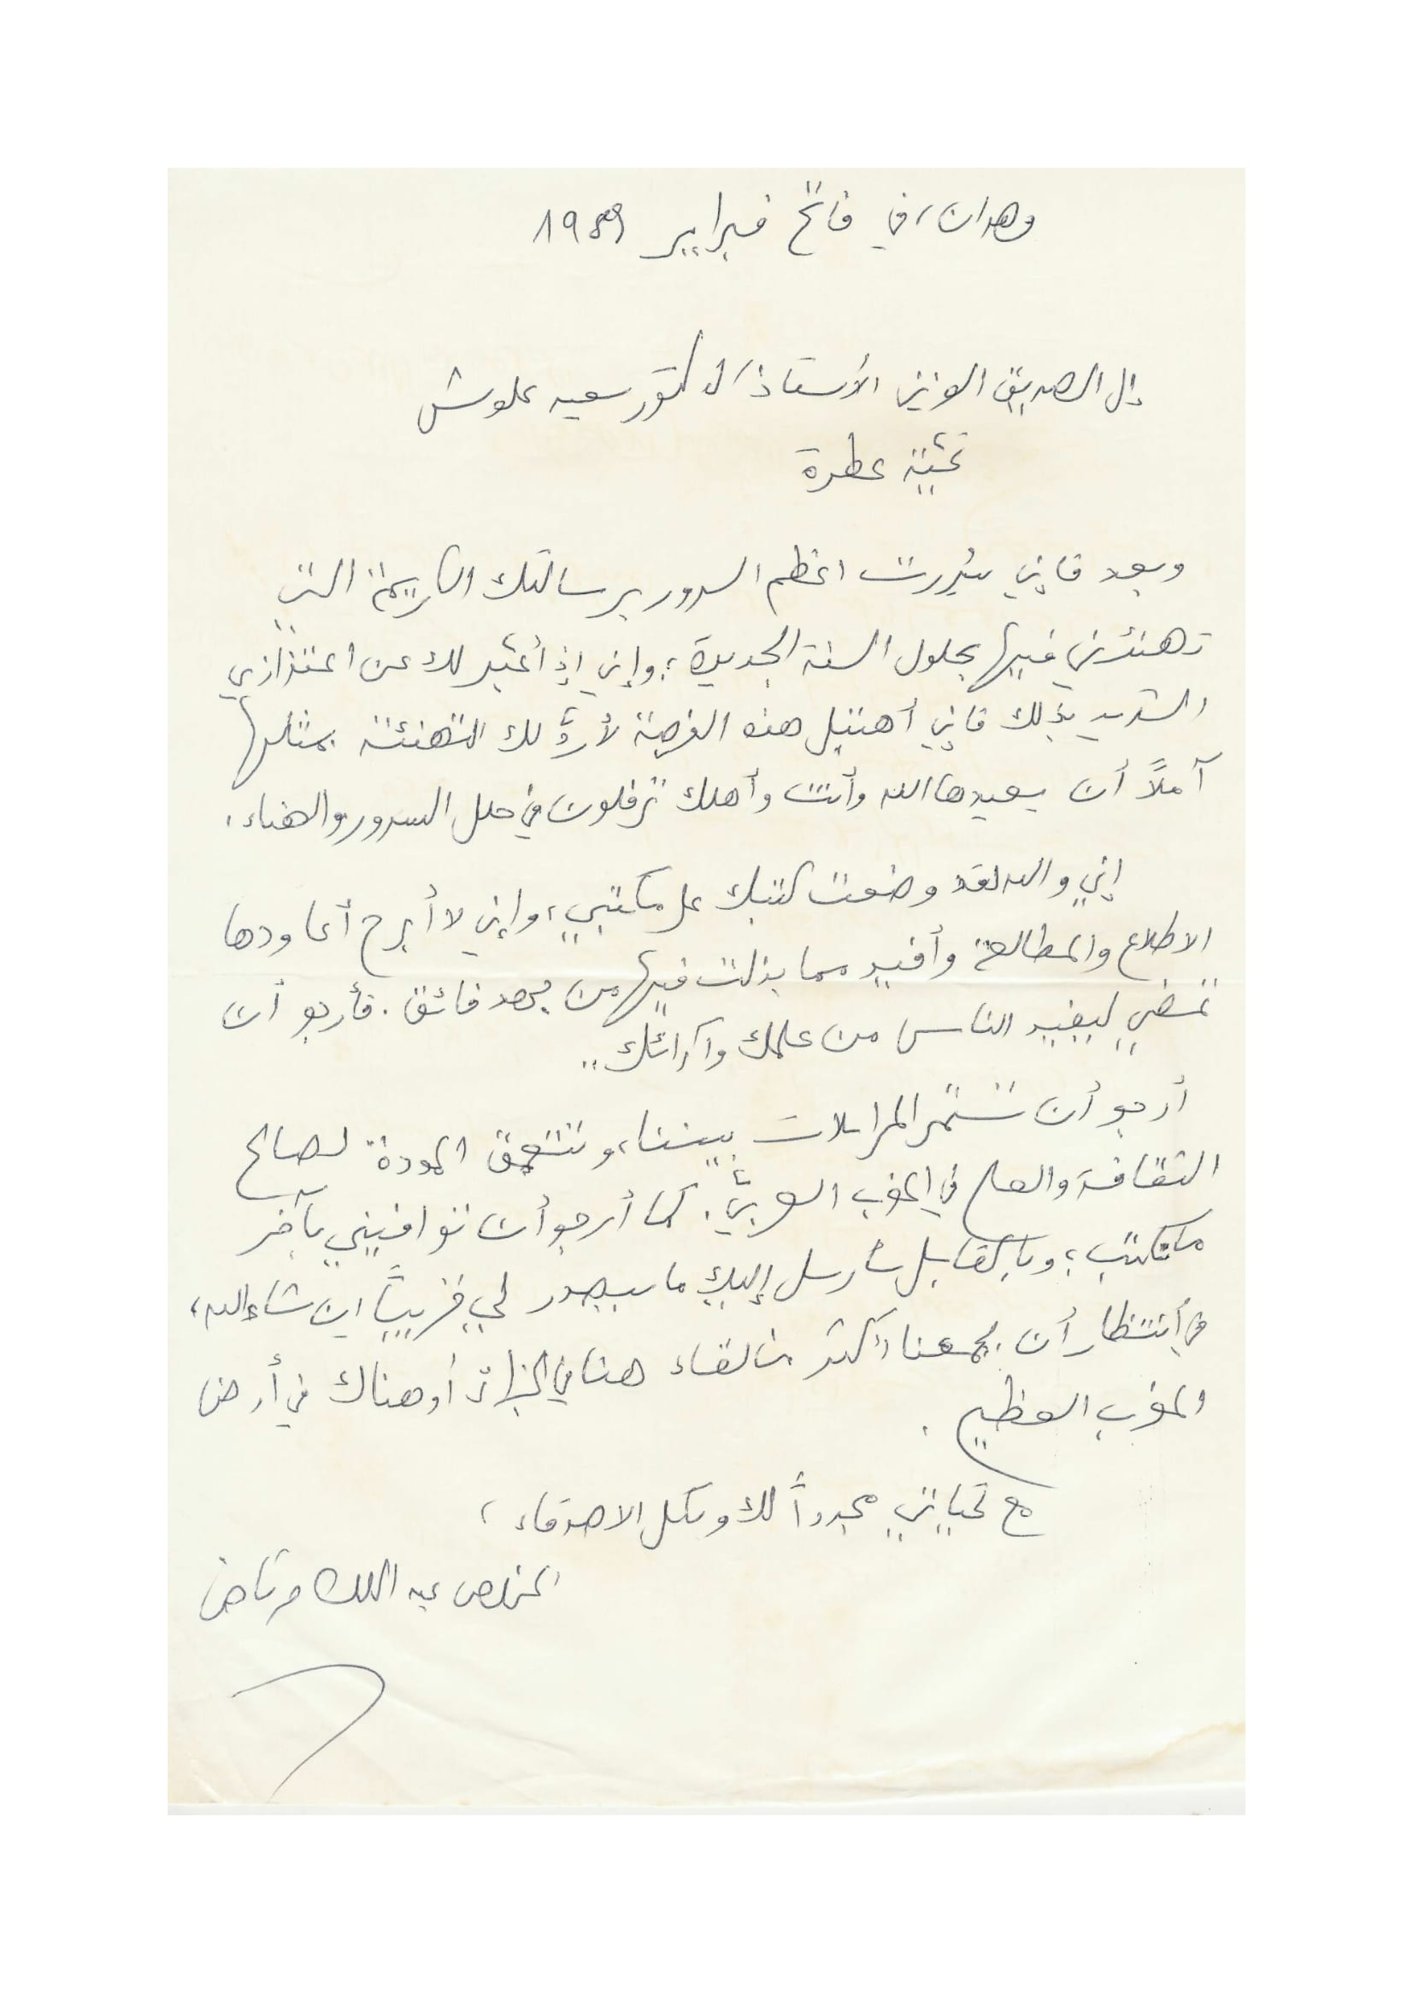 وهران، في فاتح فبراير 1989
إلى الصديق العزيز الأستاذ الدكتور سعيد علوش
تحيّة عطرة
وبعد فإني سُررت أعظم السرور برسالتك الكريمة التي
تهنئني فيها بحلول السنة الجديدة؛ وإني إذ أعبّر لك عن اعتزازي
الشديد بذلك فإني أهتبل هذه الفرصة لأردّ لك التهنئة بمثلها
آملاً أن يعيدها الله وأنت وأهلك ترفلون في حلل السرور والهناء.
إني والله لقد وضعت كتبك على مكتبي، وإني لا أبرح أعاودها
الاطلاع والمطالعة وأفيد مما بذلت فيها من جهد فائق. فأرجو أن
تمضي ليفيد الناس من علمك وآرائك..
أرجو أن تستمر المراسلات بيننا، وتتعمق المودة لصالح
الثقافة والعلم في المغرب العربيّ. كما أرجو أن توافيني بآخر
ما تكتب؛ وبالمقابل سأرسل إليك ما سيصدر لي قريباً إن شاء الله،
في انتظار أن يجمعنا أكثر من لقاء هنا في الجزائر أو هناك في أرض
المغرب العظيم.
مع تحياتي مجدداً لك ولكل الاصدقاء،
المخلص عبد الملك مرتاض